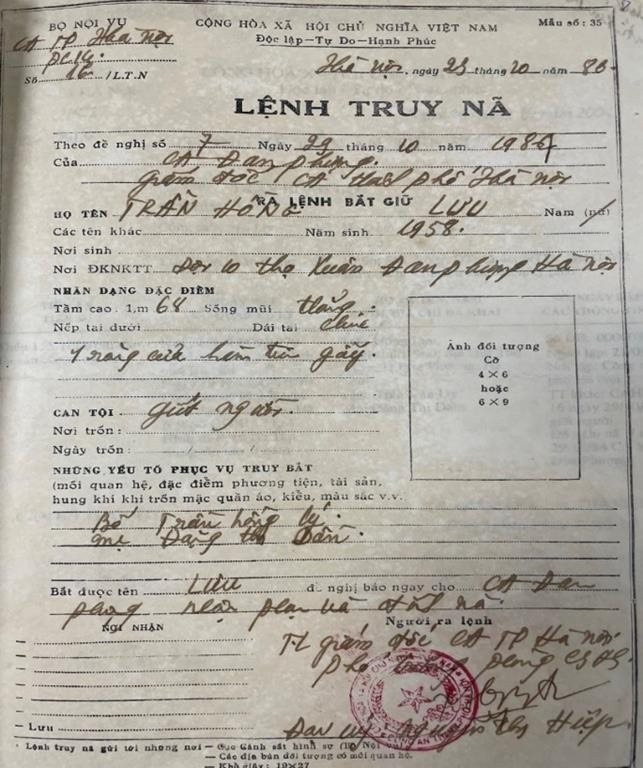 BỘ NỘI VỤ
CỘNG HÒA XÃ HỘI CHỦ NGHĨA VIỆT NAM
Mẫu số: 35
CA TP Hà Nội
Độc lập - Tự Do - Hạnh Phúc
Số 16 /L.T.N
Hà Nội, ngày 29 tháng 10 năm 86.
LỆNH TRUY NÃ
Theo đề nghị số 7 Ngày 29 tháng 10 năm 1986
Của CA Đan phượng
giám đốc CA thành phố Hà Nội
RA LỆNH BẮT GIỮ
HỌ TÊN TRẦN HỒNG LƯU Nam (nữ)
Các tên khác Năm sinh 1958.
Nơi sinh
Nơi ĐKNKTT Đội 10 thọ Xuân Đan phượng Hà nội
NHÂN DẠNG ĐẶC ĐIỂM
Tầm cao: 1,m 68 Sống mũi thẳng
Nếp tai dưới Dái tai
răng cửa hàm gẫy.
Ảnh đối tượng
Cỡ
4 × 6
hoặc
6 × 9
CAN TỘI giết người.
Nơi trốn:
Ngày trốn: / /
NHỮNG YẾU TỐ PHỤC VỤ TRUY BẮT
(mối quan hệ, đặc điểm phương tiện, tài sản,
hung khí khi trốn mặc quần áo, kiểu, màu sắc v.v.
Bố Trần hồng lý.
mẹ Đặng thị Dần.
Bắt được tên LƯU đề nghị báo ngay cho CA Đan
phượng nhận
NƠI NHẬN
Người ra lệnh
TL giám đốc CA TP Hà nội
phó phòng CSHS
— Lưu
Hiệp
Lệnh truy nã gửi tới những nơi — Cục Cảnh sát hình sự (Bộ Nội vụ)
— Các địa bàn đối tượng có mối quan hệ.
— Khổ giấy: 19×27